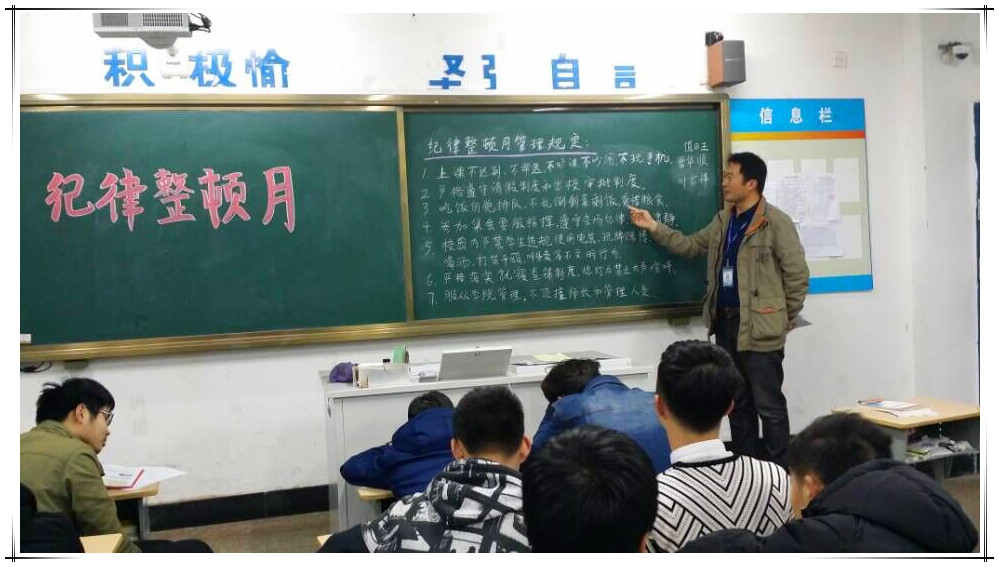 积极愉
圣引 自言
信息栏
纪律整顿月
纪律整顿月管理规定:
值日生
1. 上课不迟到、不早退、不旷课、不吵闹、不玩手机.
2. 严格遵守请假制度和出校审批制度.
3. 吃饭自觉排队、不乱倒剩菜剩饭,爱惜粮食.
4. 参加集会要服从指挥,遵守会场纪律,
5. 校园内严禁学生违规使用电器、玩牌赌博、
喝酒、打架斗殴、等不文明行为.
6. 严格落实就寝查铺制度,熄灯后禁止大声喧哗.
7. 服从学院管理,不顶撞师长和管理人员.